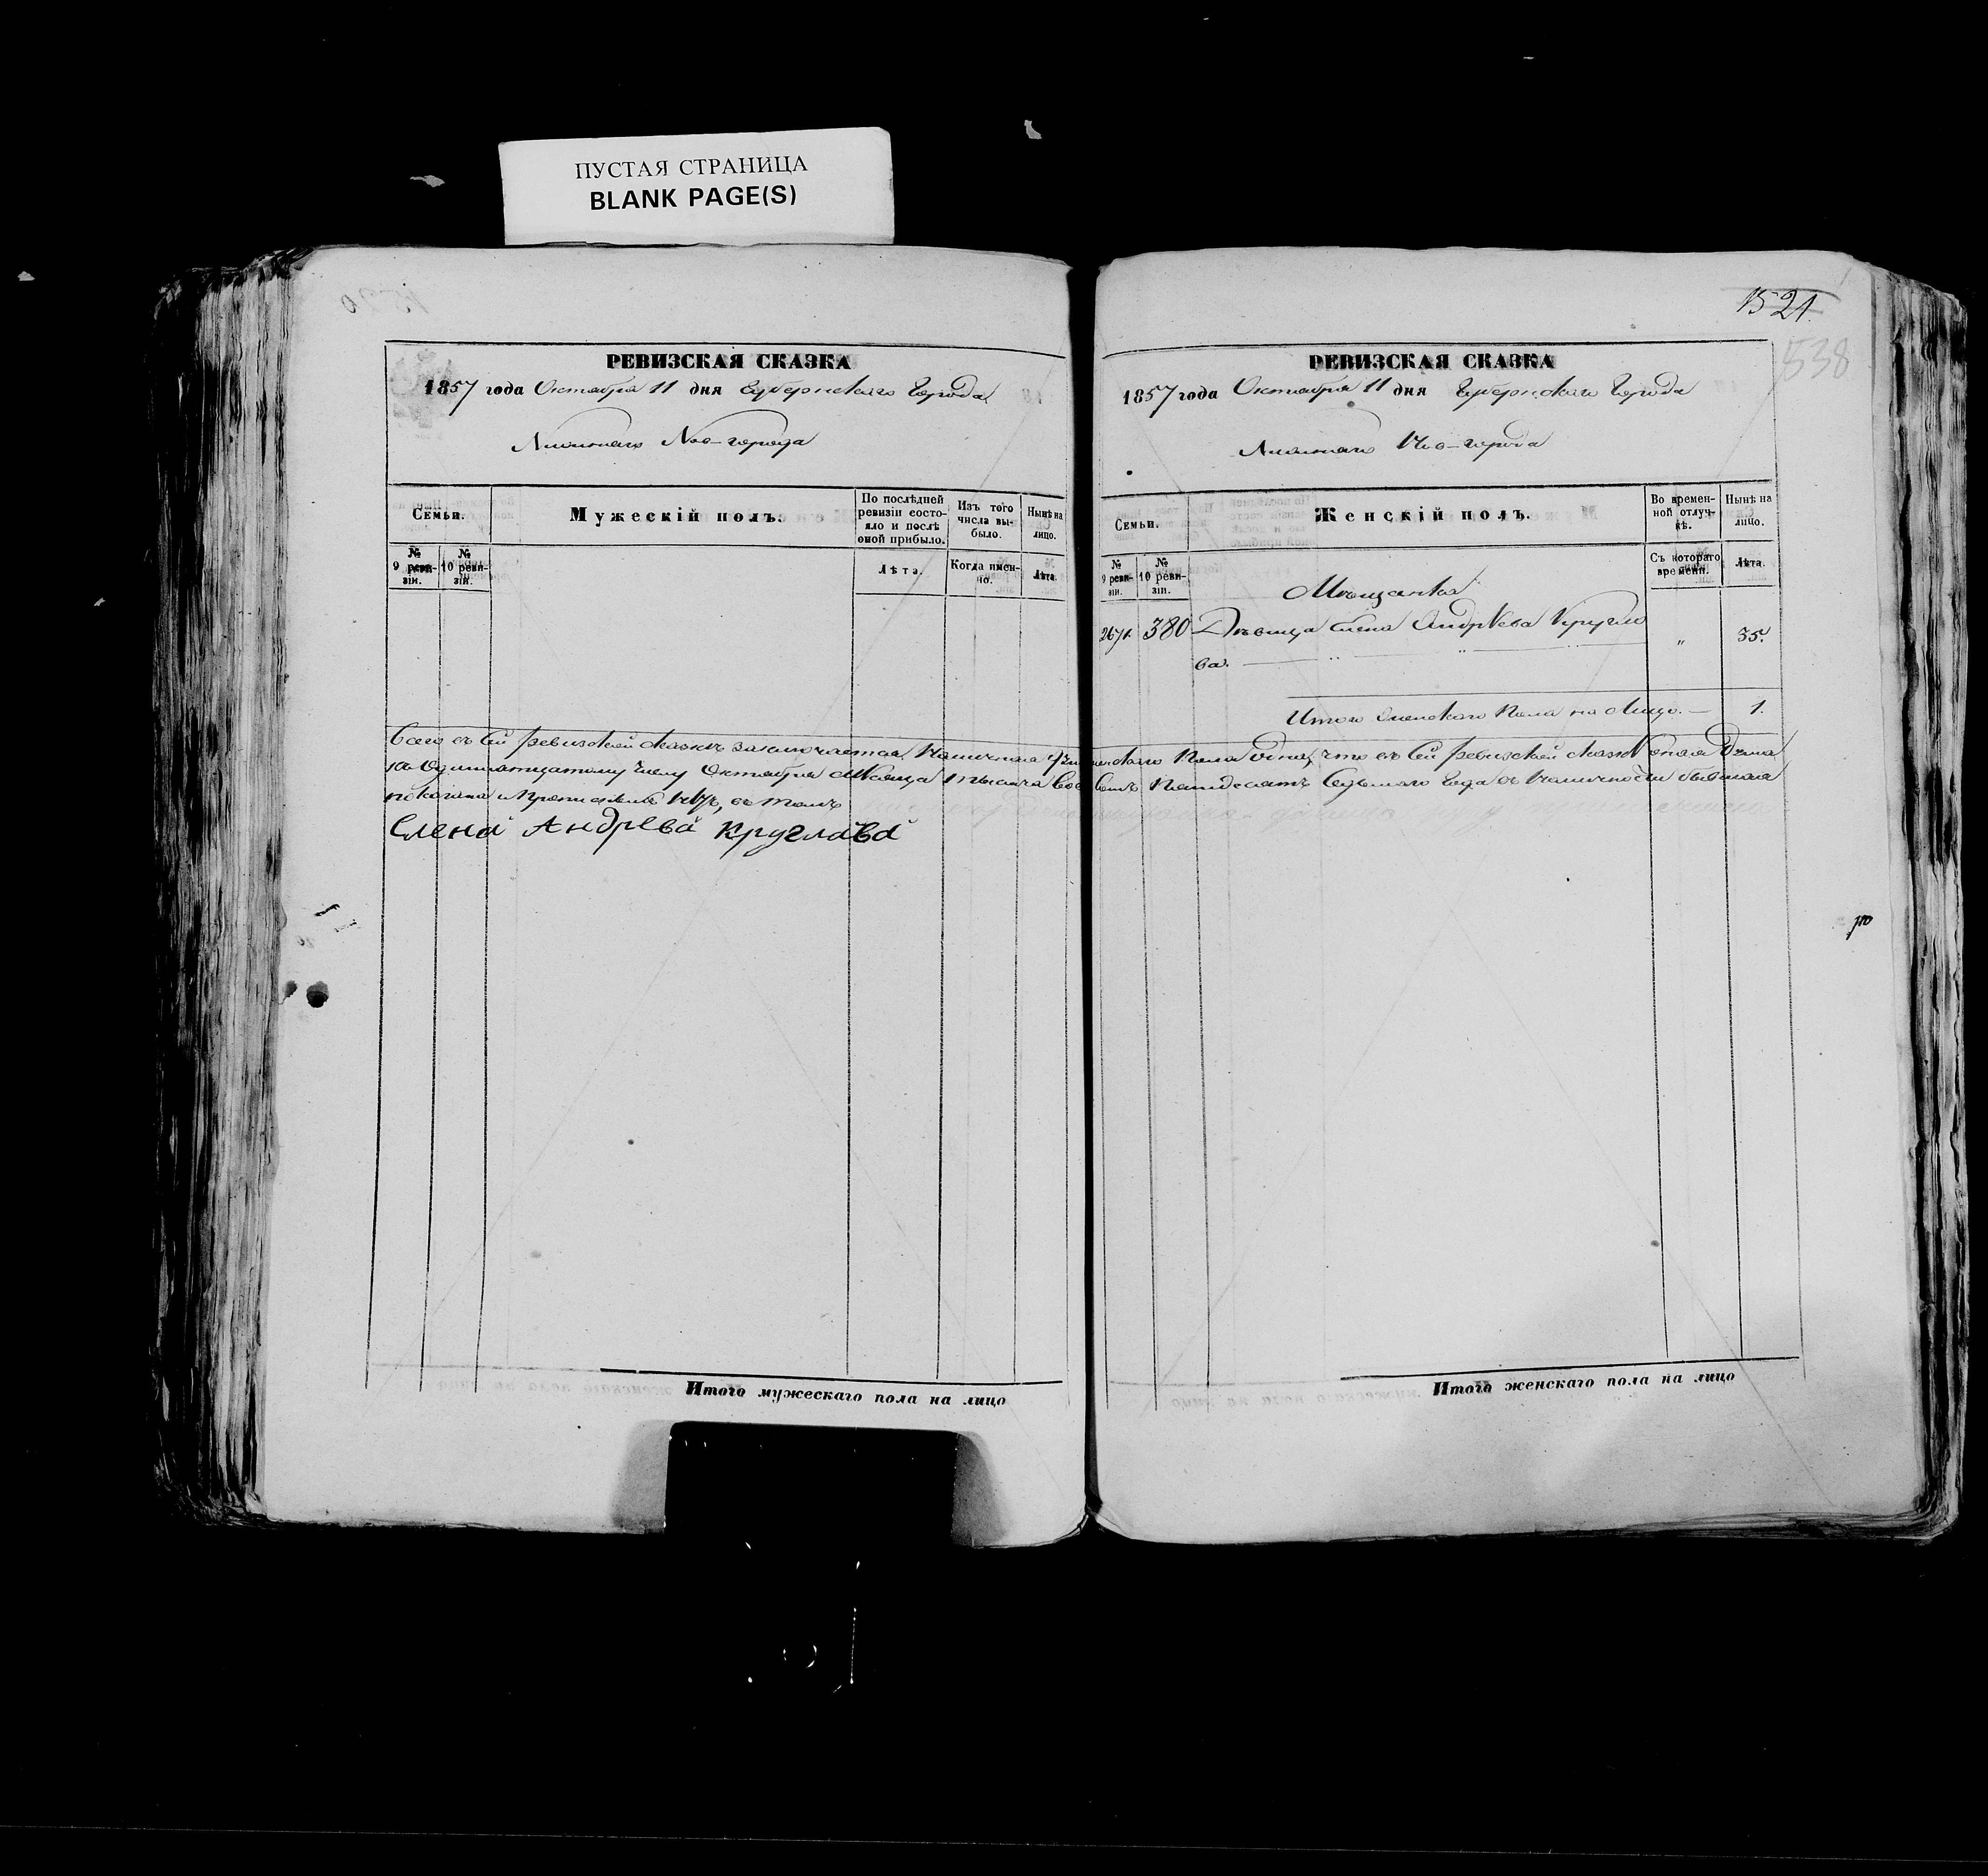 ПУСТАЯ СТРАНИЦА
BLANK PAGE(S)
РЕВИЗСКАЯ СКАЗКА
1857 года Октября 11 дня Губернскаго Города
Нижняго Нов-города
Семьи.
Мужескій полъ.
По послѣдней ревизіи состояло и послѣ оной прибыло.
Изъ того числа выбыло.
Нынѣ на лицо.
№ 9 ревизіи.
№ 10 ревизіи.
Лѣта.
Когда именно.
Лѣта.
Итого мужескаго пола на лицо
1521.
538
РЕВИЗСКАЯ СКАЗКА
1857 года Октября 11 дня Губернскаго Города
Нижняго Нов-города
Семьи.
Женскій полъ.
Во временной отлучкѣ.
Нынѣ на лицо.
№ 9 ревизіи.
№ 10 ревизіи.
Съ котораго времени.
Лѣта.
Мѣщанка
267. 380 Дѣвица Елена Андрѣева Кругло „ 35.
ва.
Итого женскаго пола на лицо. — 1.
Всего въ сей ревизской сказкѣ заключается наличная женскаго пола одна, что въ сей ревизской сказкѣ
Октября мѣсяца тысяча восемь сотъ пятьдесятъ седьмаго года въ наличности бывшая
показана и прописныхъ нѣтъ, въ томъ
Елена Андрева Круглава
Итого женскаго пола на лицо